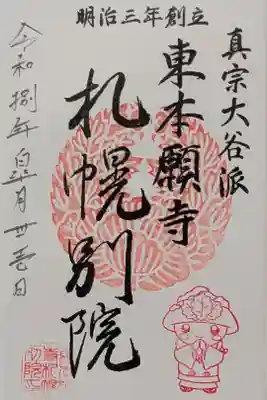 明治三年創立
真宗大谷派
東本願寺
札幌別院
令和捌年皐月壱日